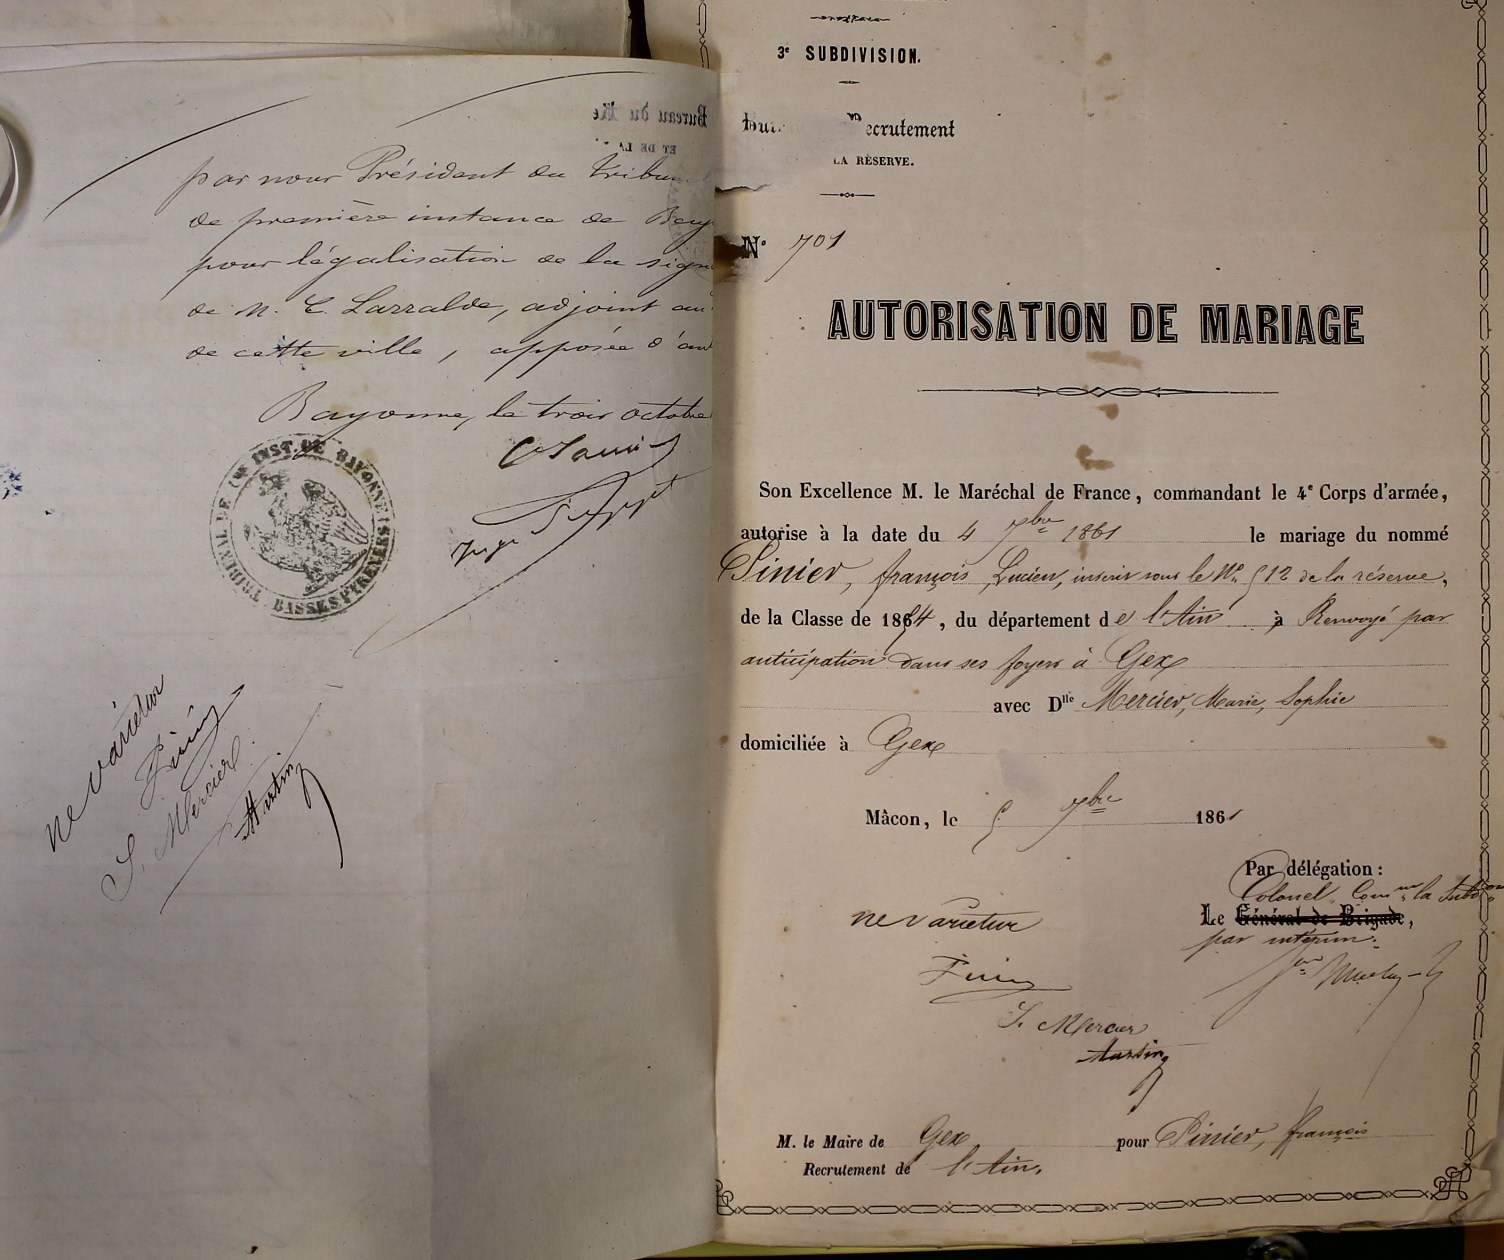 Bureau du Re
ET DE LA
par nous Président du tribun
de première instance de Bay
pour légalisation de la sign
de M. C. Larralde, adjoint au
de cette ville, apposée d'au
Bayonne, le trois octobre
TRIBUNAL DE 1re INST. DE BAYONNE
BASSES PYRÉNÉES
ne varietur
Pinier
S. Mercier
Martin
3e SUBDIVISION.
ecrutement
LA RÉSERVE.
N° 701
AUTORISATION DE MARIAGE
Son Excellence M. le Maréchal de France, commandant le 4e Corps d'armée,
autorise à la date du 4 7bre 1861 le mariage du nommé
Pinier, françois, Lucien, inscrit sous le No 512 de la réserve,
de la Classe de 1854, du département de l'Ain à Renvoyé par
anticipation dans ses foyers à Gex
avec Dlle Mercier, Marie, Sophie
domiciliée à Gex
Mâcon, le 5 7bre 1861
Par délégation :
Colonel Comm la Subdon
Le Général de Brigade,
par intérim
ne varietur
Pinier
S. Mercier
Martin
M. le Maire de Gex pour Pinier, françois
Recrutement de l'Ain.